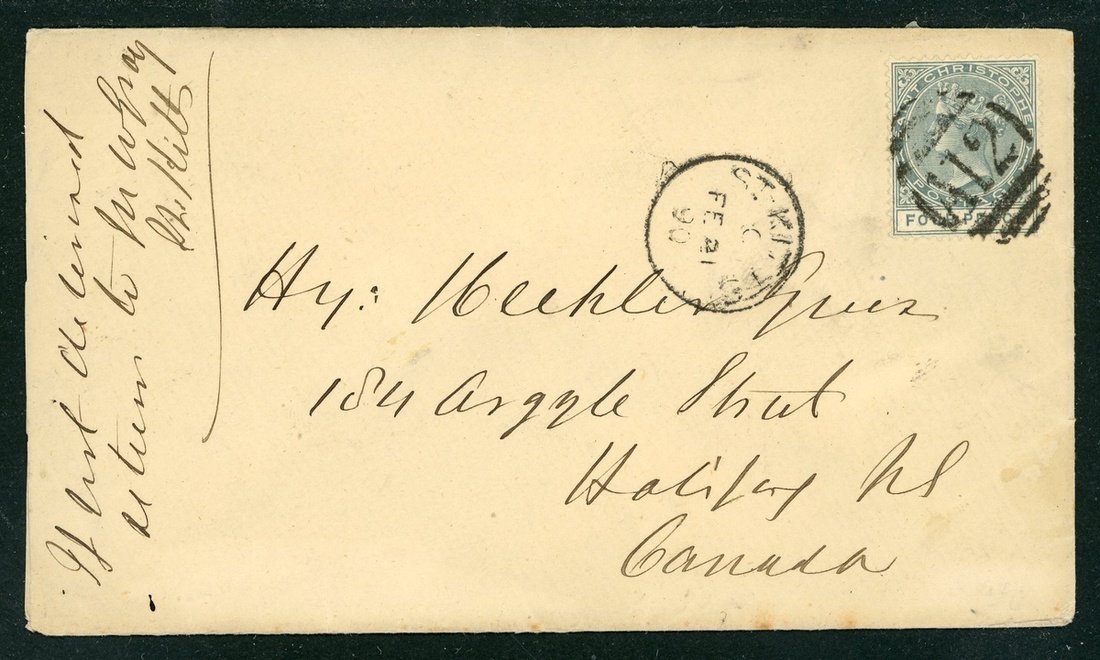 If not delivered
return to M W Gray
St. Kitts
SAINT CHRISTOPHER
POSTAGE
FOUR PENCE
A12
ST. KITTS
C
FE 21
90
Hy: Hechler Esquire
184 Argyle Street
Halifax NS
Canada